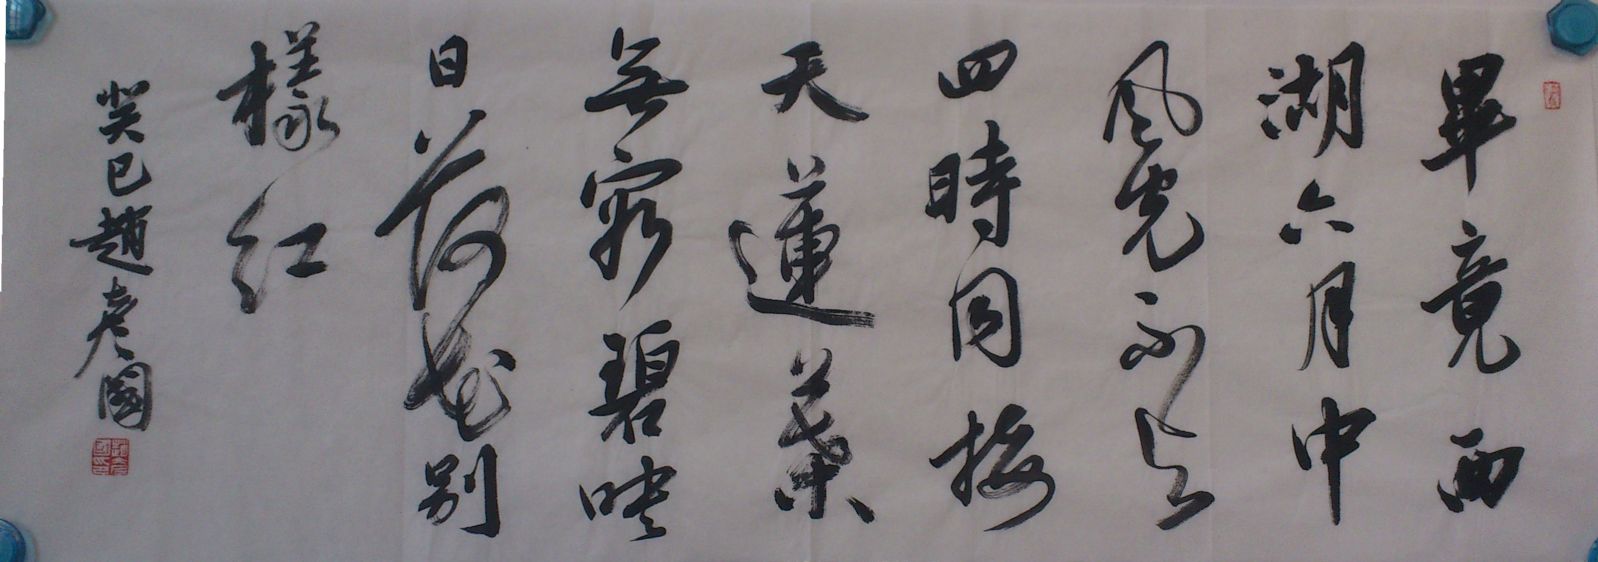 畢竟西
湖六月中
風光不与
四時同接
天蓮葉
無窮碧映
日荷花别
樣紅
癸巳趙彥國